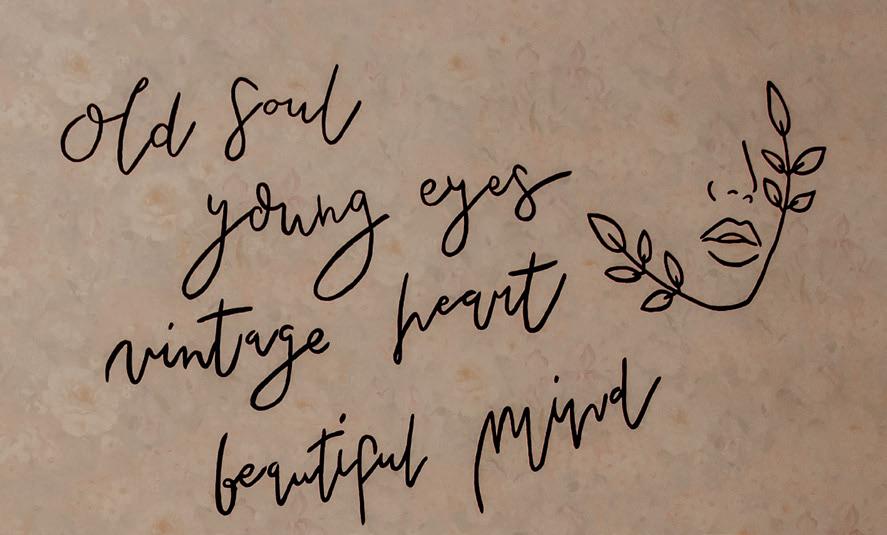 Old Soul
young eyes
vintage heart
beautiful Mind